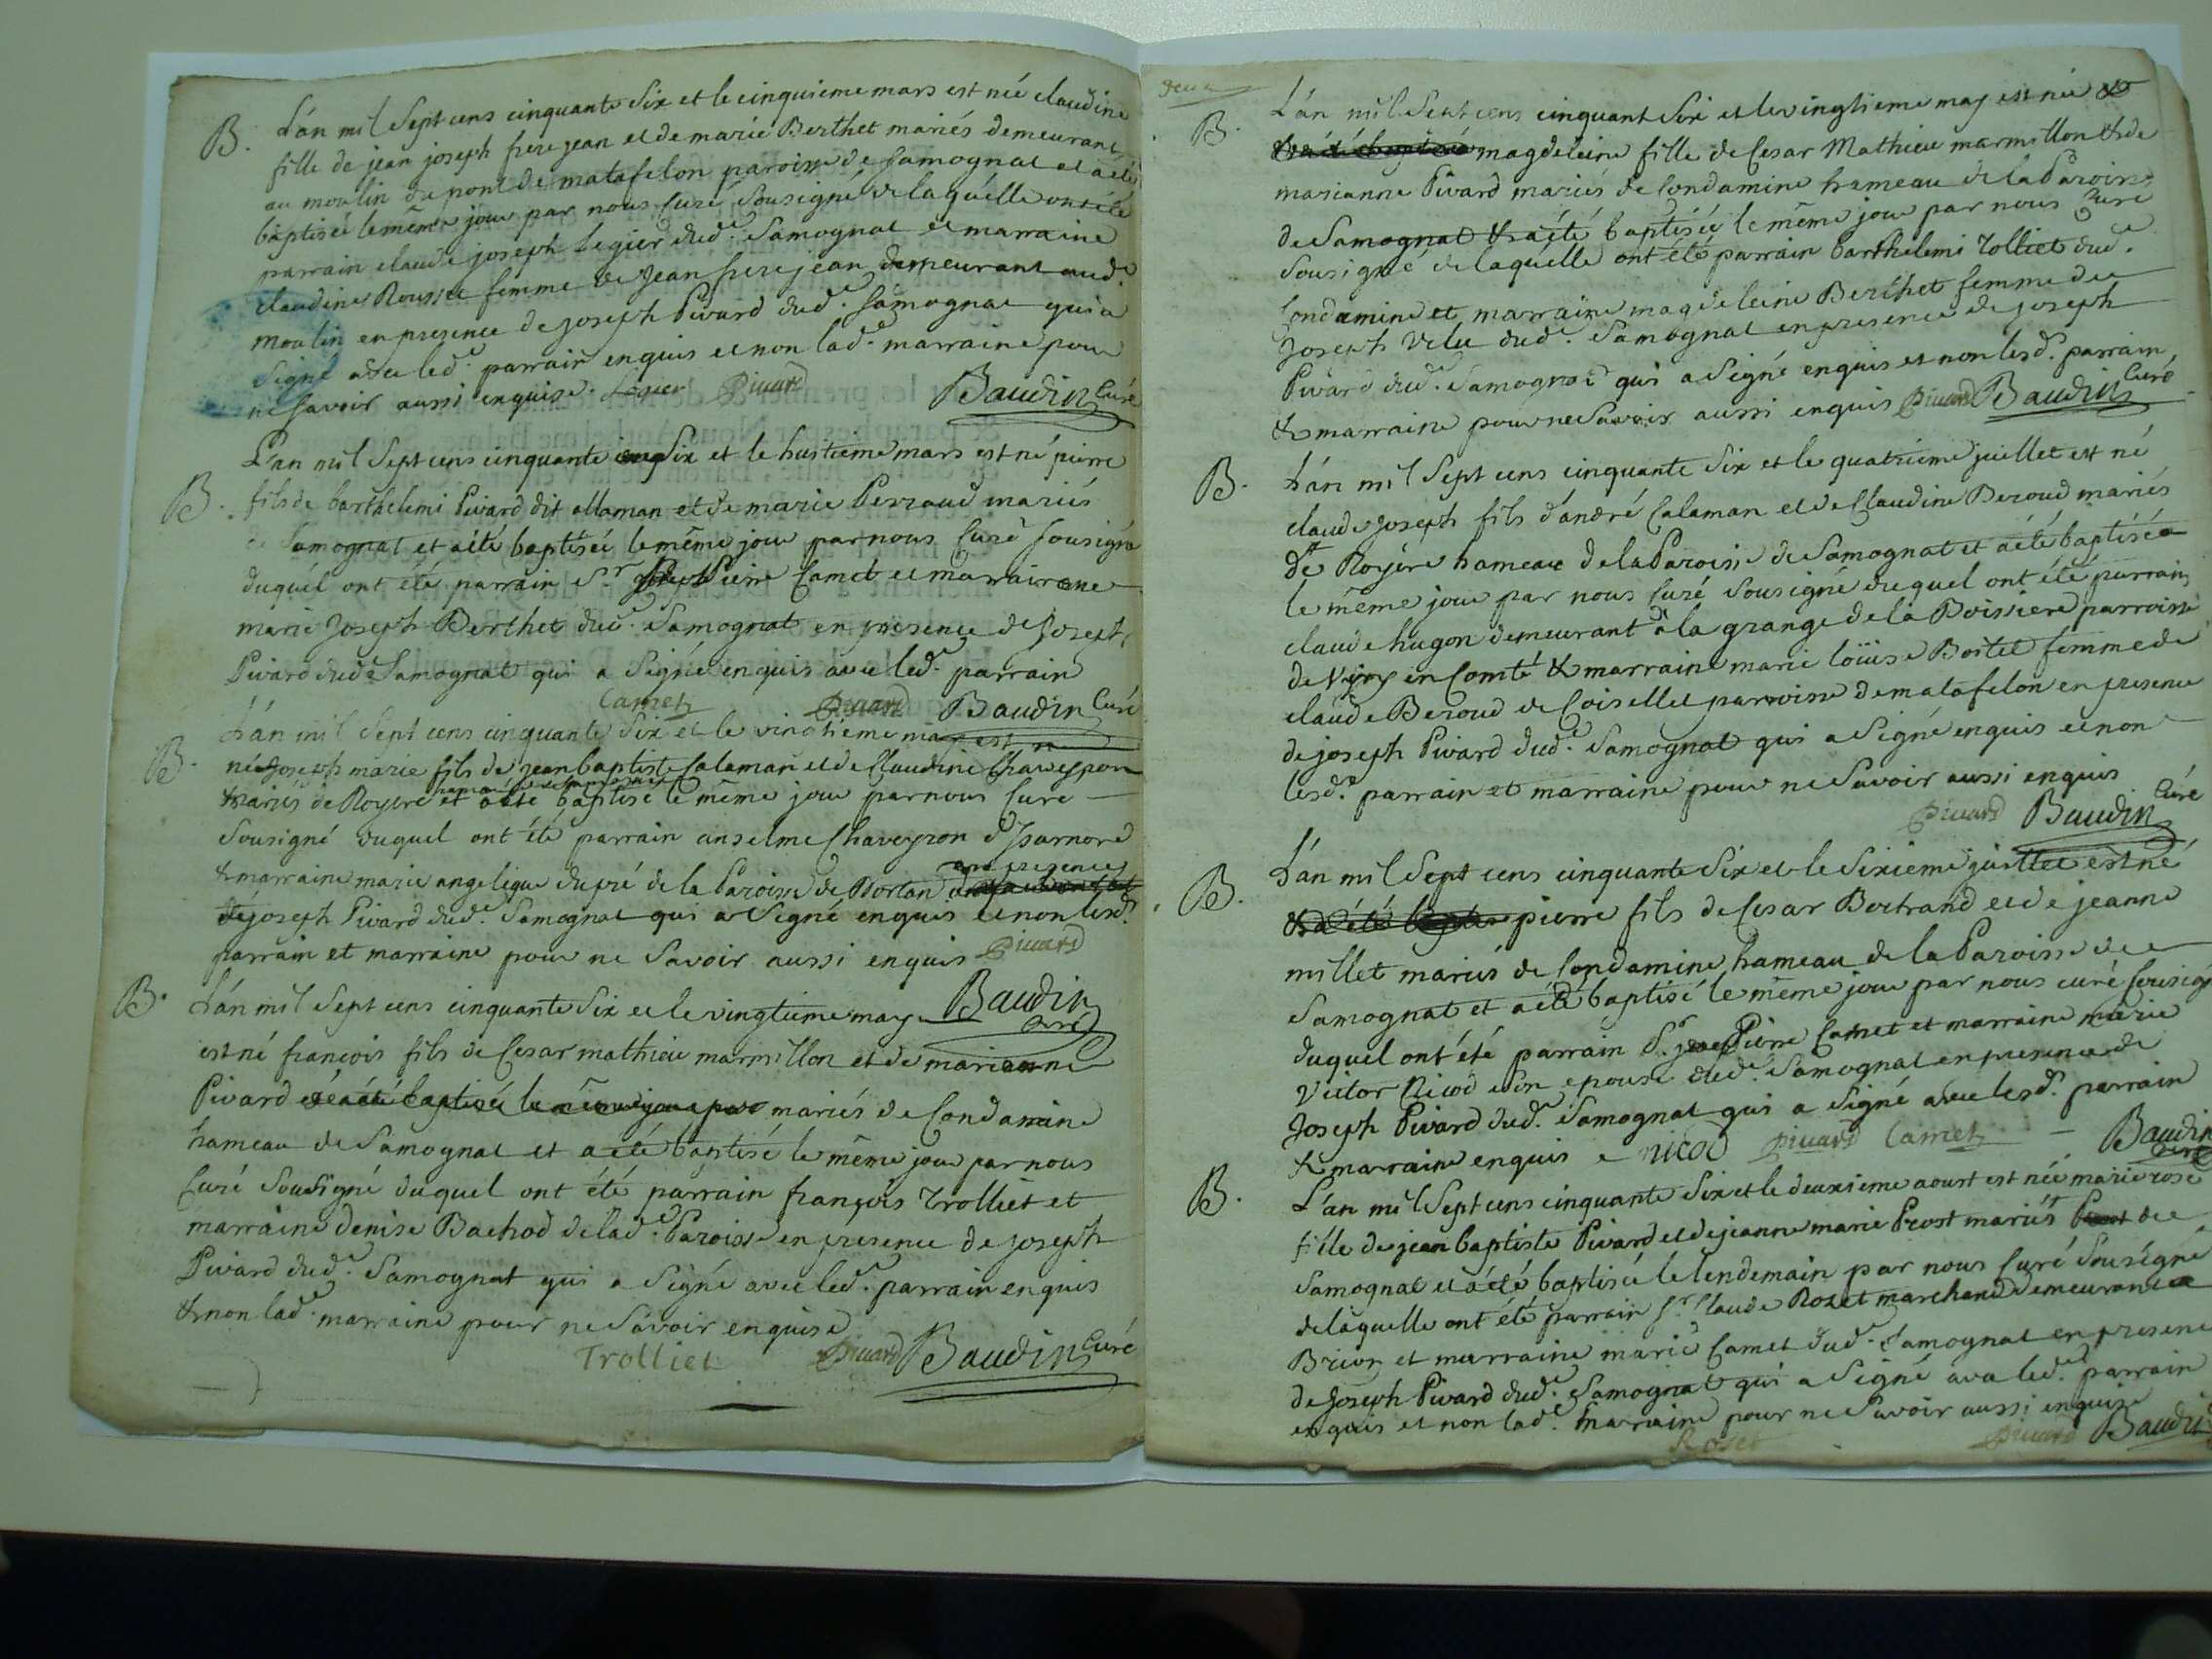 B. L'an mil Sept cens cinquante Six et le cinquieme mars est née claudine
fille de jean joseph frere jean et de marie Berthet mariés demeurant
au moulin de pont de matafelon paroisse de Samognat et a été
baptisée le même jour par nous Curé Sousigné de laquélle ont été
parrain claude joseph legier dud.e Samognat et marraine
claudine Rousset femme de Jean frere jean demeurant aud.
moulin en presence de joseph Pivard dud.e Samognat qui a
Signé avec led.e parrain enquis et non lad.e marraine pour
ne Savoir aussi enquise. Legier Pivard Baudin Curé
B. L'an mil Sept cens cinquante Six et le huitieme mars est né pierre
fils de barthelemi Pivard dit allaman et de marie Perraud mariés
de Samognat et a été baptisée le même jour par nous Curé Sousigné
duquél ont été parrain S.r Pierre Camet et marraine
marie Joseph Berthet dud.e Samognat en presence de Joseph
Pivard dud.e Samognat qui a Signé enquis avec led.e parrain
Camet Pivard Baudin Curé
B. L'an mil Sept cens cinquante Six et le vingtieme may est
né Joseph marie fils de jean baptiste Calaman et de Claudine Chaveyron
mariés de Royere et a été baptisé le même jour par nous Curé
Sousigné duquel ont été parrain anselme Chaveyron d'Isarnore
& marraine marie angelique dupré de la Paroisse de Dortan en presence
de joseph Pivard dud.e Samognat qui a Signé enquis et non lesd.
parrain et marraine pour ne Savoir aussi enquis Pivard
B. L'an mil Sept cens cinquante Six et le vingtieme may Baudin Curé
est né françois fils de Cesar mathieu marmillon et de marianne
Pivard et a été baptisé le même jour par mariés de Condamine
hameau de Samognat et a été baptisé le même jour par nous
Curé Sousigné duquel ont été parrain françois Trolliet et
marraine denise Bachod de lad.e Paroisse en presence de joseph
Pivard dud.e Samognat qui a Signé avec led.e parrain enquis
& non lad.e marraine pour ne Savoir enquise
Trolliet Pivard Baudin Curé
deux
B. L'an mil Sept cens cinquant Six et le vingtieme may est née &
magdeleine fille de Cesar Mathieu marmillon & de
marianne Pivard mariés de Condamine hameau de la Paroisse
de Samognat & a été baptisée le même jour par nous Curé
Sousigné de laquélle ont été parrain barthelemi Tolliet dud.e
Condamine et marraine magdeleine Berthet femme de
Joseph Velu dud.e Samognat en presence de joseph
Pivard dud.e Samognat qui a Signé enquis et non lesd. parrain
& marraine pour ne Savoir aussi enquis Pivard Baudin Curé
B. L'an mil Sept cens cinquante Six et le quatrieme juillet est né
claude joseph fils d'andré Calaman et de Claudine Beroud mariés
de Royere hameau de la Paroisse de Samognat et a été baptisé
le même jour par nous Curé Sousigné duquel ont été parrain
claude hugon demeurant a la grange de la Boissiere parroisse
de Viry en Comté & marraine marie loüise Bortet femme de
claude Beroud de Coisellet parroisse de matafelon en presence
de joseph Pivard dud.e Samognat qui a Signé enquis et non
lesd.e parrain et marraine pour ne Savoir aussi enquis
Pivard Baudin Curé
B. L'an mil Sept cens cinquante Six et le Sixieme juillet est né
pierre fils de Cesar Bertrand et de jeanne
millet mariés de Condamine hameau de la Paroisse de
Samognat et a été baptisé le même jour par nous curé Sousigné
duquel ont été parrain S.r Pierre Camet et marraine marie
Victor Nicod son epouse dud.e Samognat en presence de
Joseph Pivard dud.e Samognat qui a Signé avec lesd. parrain
& marraine enquis nicod Pivard Camet Baudin Curé
B. L'an mil Sept cens cinquante Six et le deuxieme aoust est née marie rose
fille de jean baptiste Pivard et de jeanne marie Prost mariés de
Samognat et a été baptisée le lendemain par nous Curé Sousigné
de laquelle ont été parrain S.r Claude Rozet marchand demeurant a
Brion et marraine marie Camet dud.e Samognat en presence
de Joseph Pivard dud.e Samognat qui a Signé avec led. parrain
enquis et non lad.e marraine pour ne Savoir aussi enquise
Roset Pivard Baudin